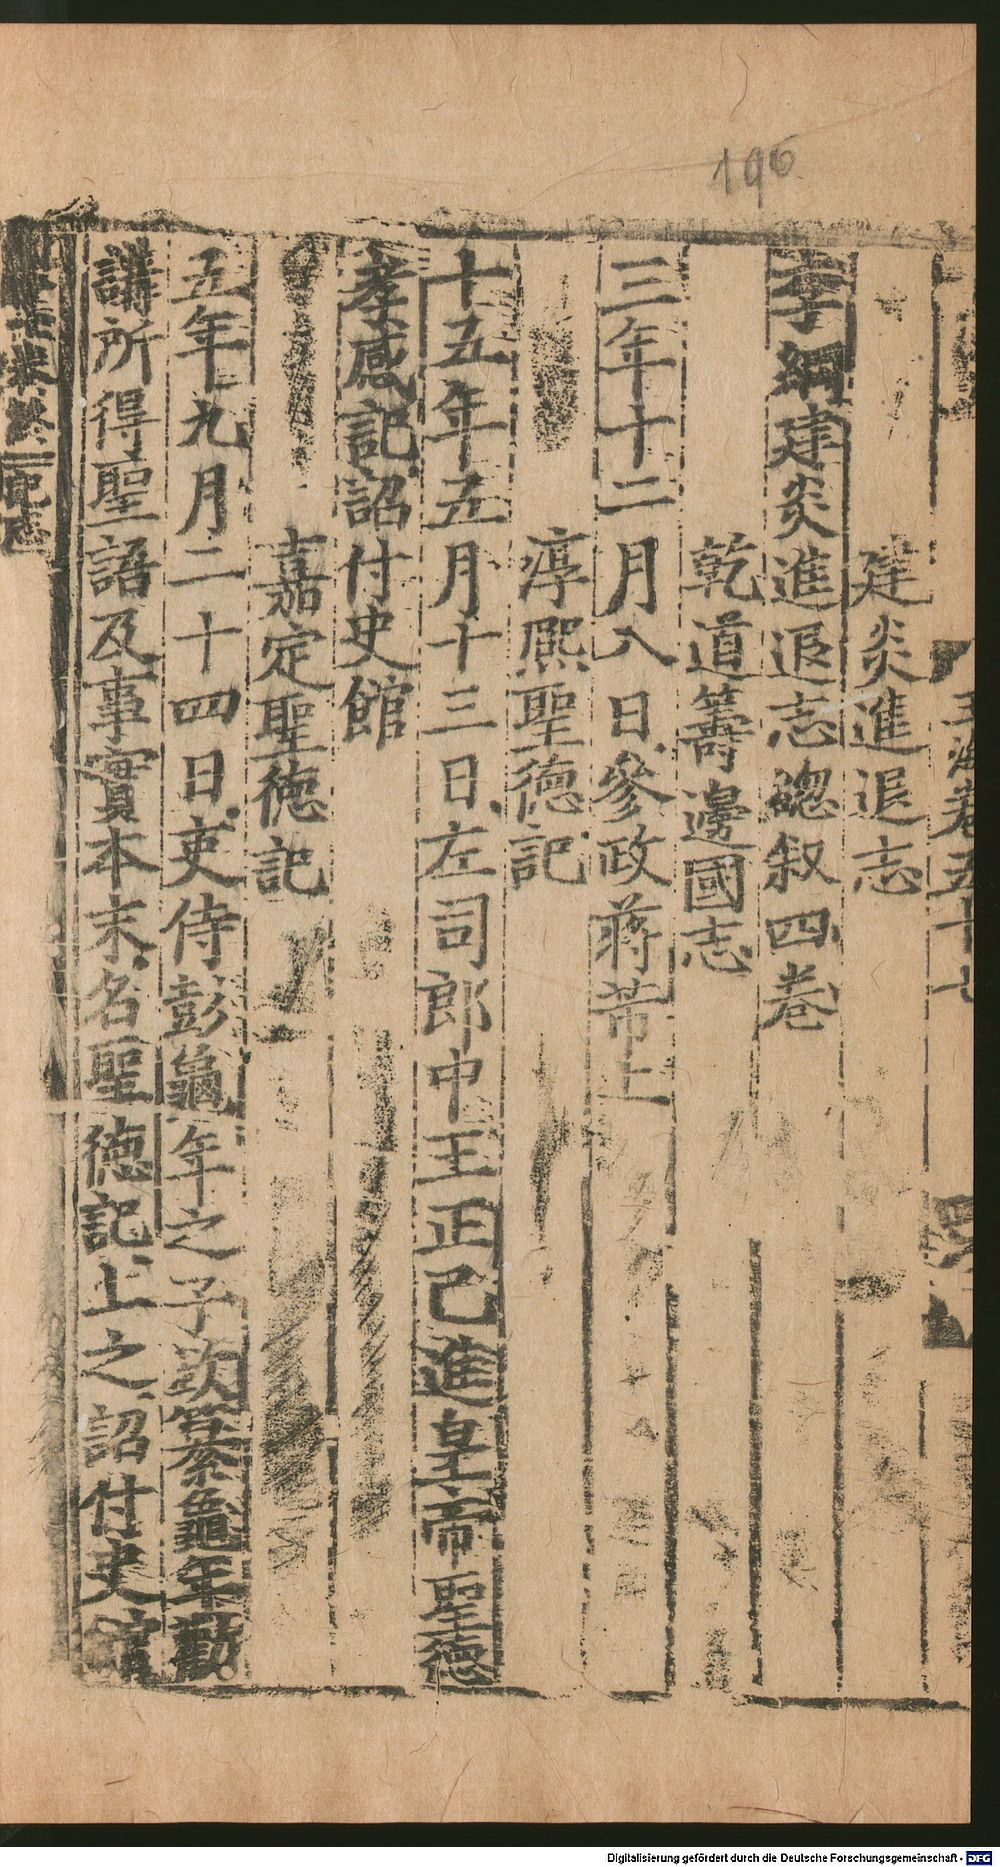 196
玉海卷五十七
建炎進退志
李綱建炎進退志總叙四卷
乾道籌邊國志
三年十二月八日參政蔣芾上
淳熙聖德記
十五年五月十三日左司郎中王正己進皇帝聖德
孝感記詔付史館
嘉定聖德記
五年九月二十四日吏侍彭龜年之子欽纂龜年勸
講所得聖語及事實本末名聖德記上之詔付史館
記志
Digitalisierung gefördert durch die Deutsche Forschungsgemeinschaft - DFG